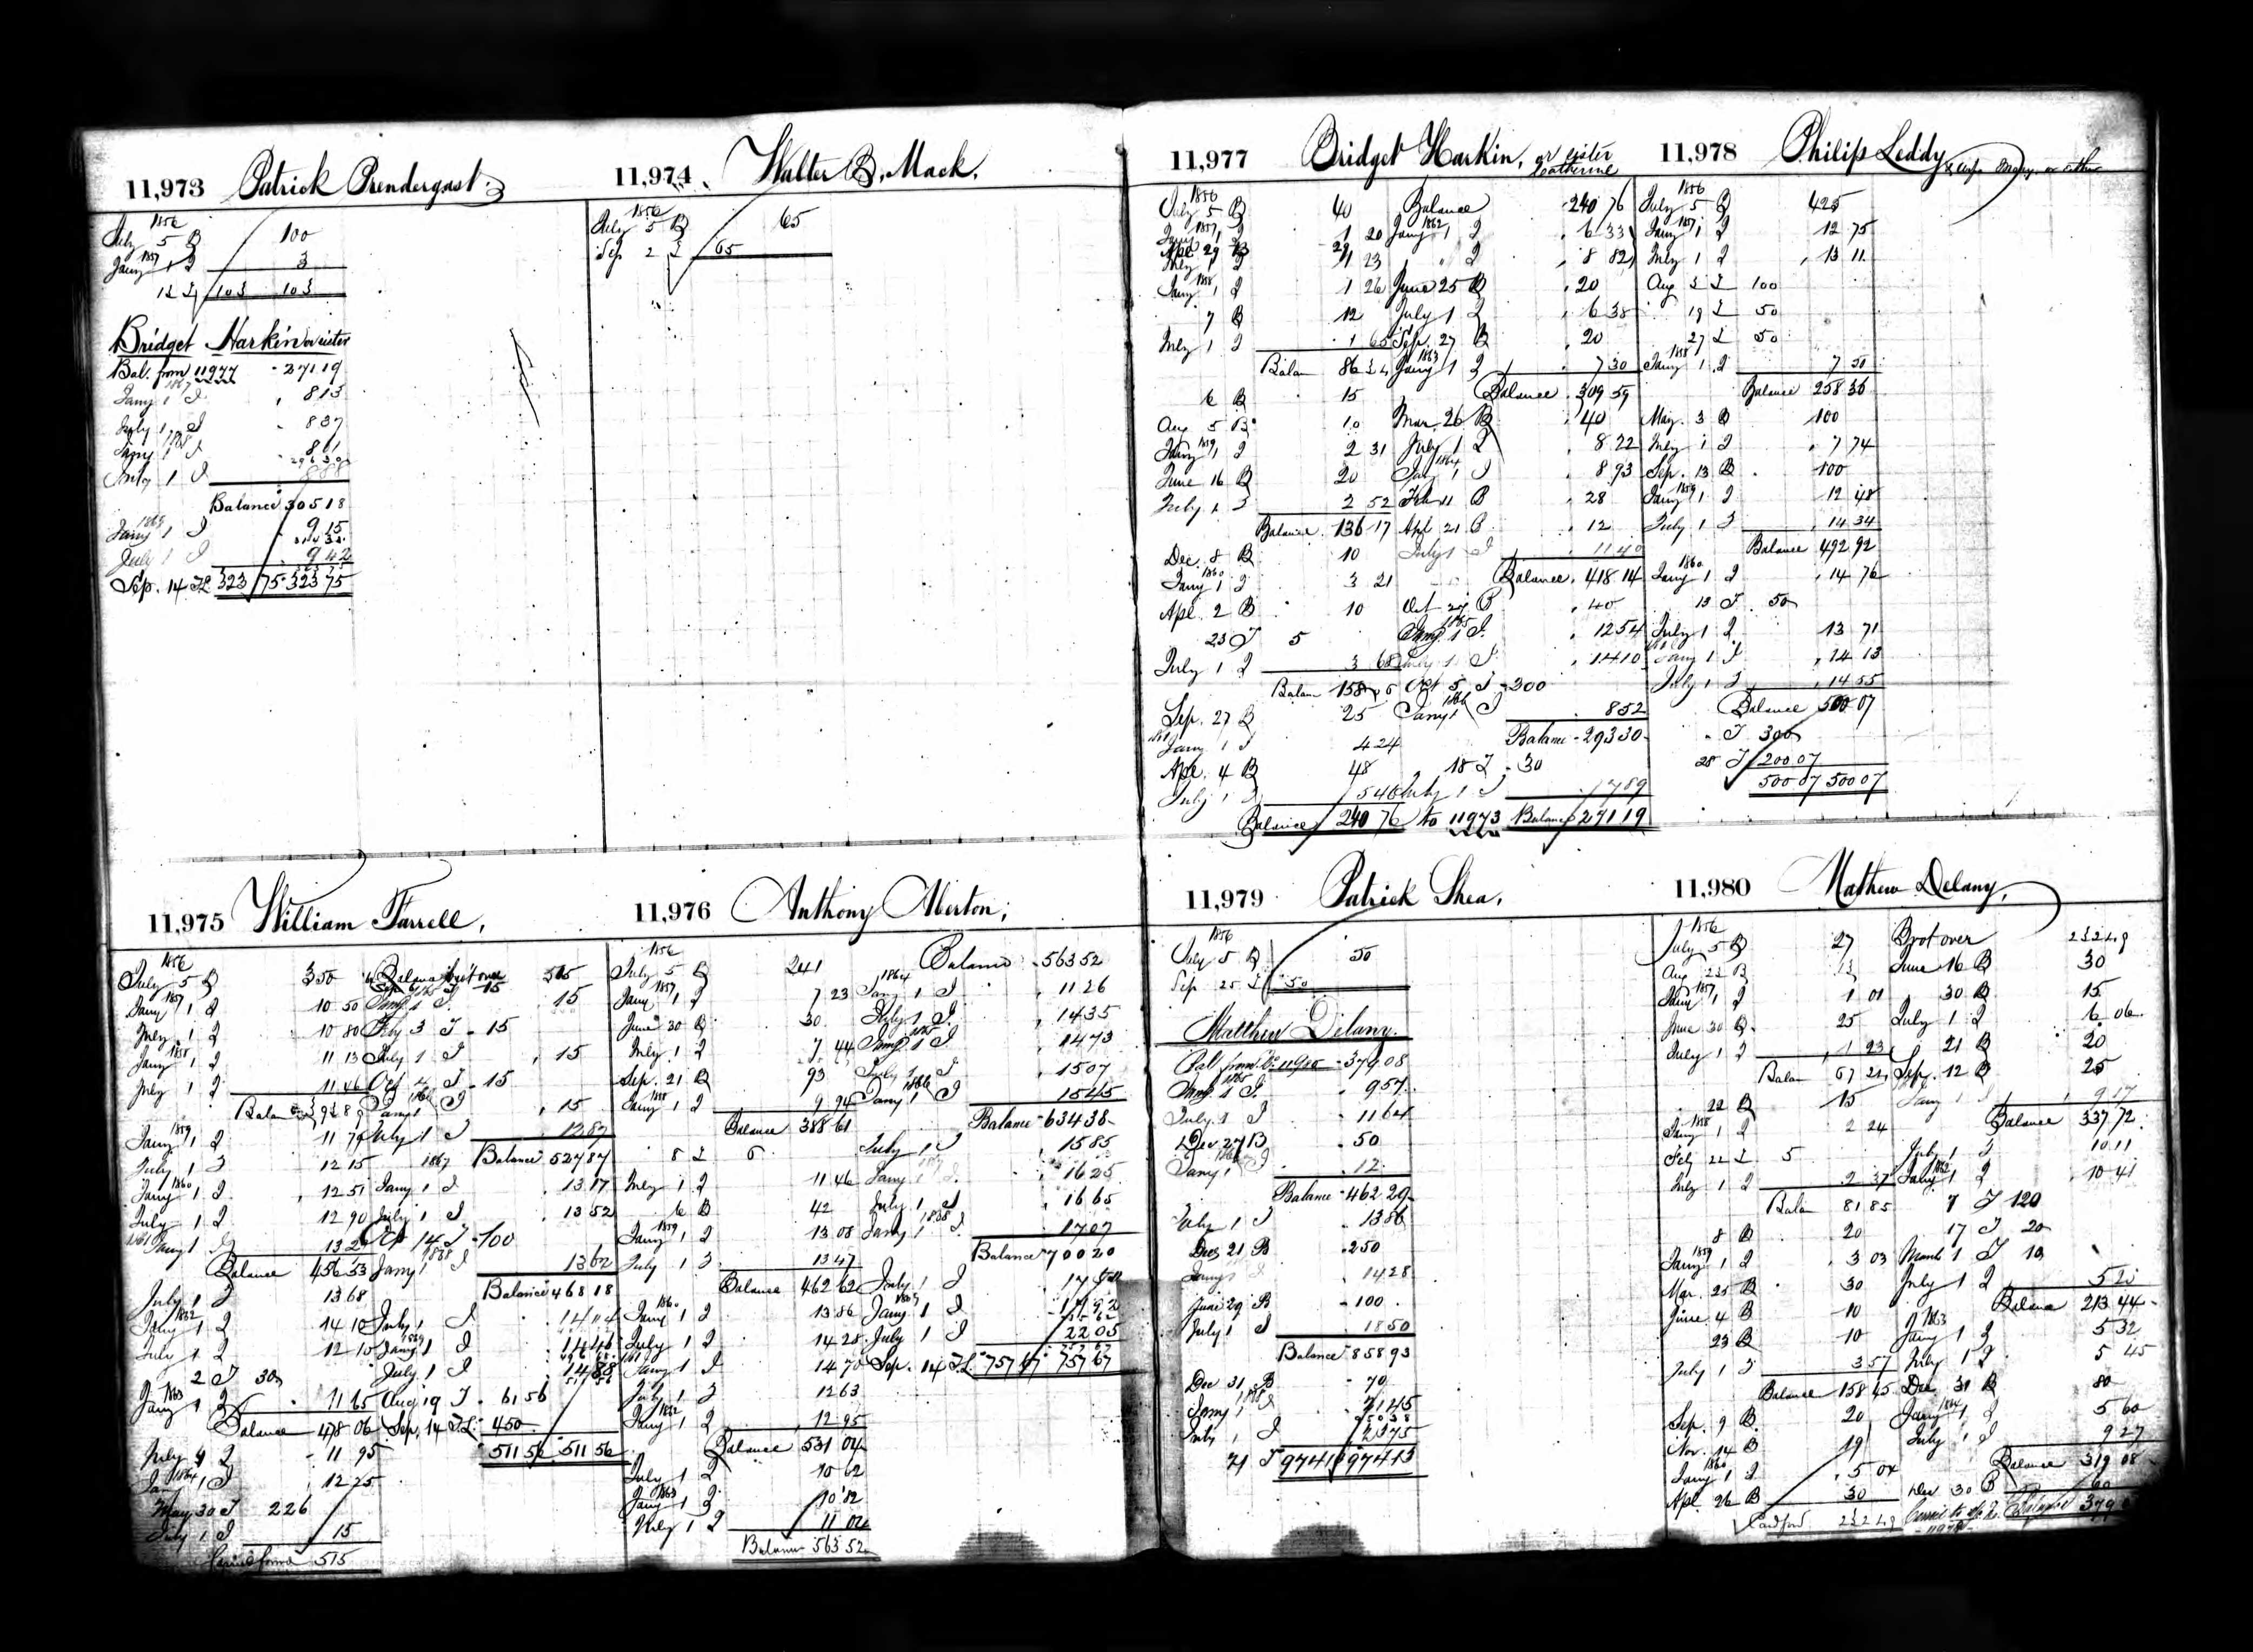 11,973 Patrick Prendergast.
1856
July 5 B 100
1857
Jany 1 I 3
103 103
Bridget Harkin or sister
Bal. from 11977 271 19
1867
Jany 1 I 8 13
July 1 I 8 37
1868
Jany 1 I 8 61
July 1 I 8 88
Balance 305 18
1869
Jany 1 I 9 15
July 1 I 9 42
Sep. 14 323 75 323 75
11,974 Walter B. Mack.
1856
July 5 B 65
Sep 2 65
11,975 William Farrell,
1856
July 5 B 350
1857
Jany 1 I 10 50
July 1 I 10 80
1858
Jany 1 I 11 13
July 1 I 11 46
1859
Jany 1 I 11 79
July 1 I 12 15
1860
Jany 1 I 12 51
July 1 I 12 90
Jany 1 I
Balance 456 53
July 1 I 13 68
1862
Jany 1 I 14 10
July 1 I
2 I 30
1863
Jany 1 I 11 65
Balance 478 06
July 1 I 11 95
1864
Jany 1 I 12 25
May 30 I 226
July 1 I 15
515
515
Jany 1 I 15
July 1 I 15
Oct 15
1866
Jany 1 I 15
July 1 I 12 87
Balance 527 87
1867
Jany 1 I 13 17
July 1 I 13 52
Oct 14 I 100
1868
Jany 1 I 13 62
Balance 468 18
July 1 I 14 04
1869
Jany 1 I 14 46
July 1 I 14 88
Aug 19 I 61 56
Sep. 14 450
511 56 511 56
11,976 Anthony Overton,
1856
July 5 B 241
1857
Jany 1 I 7 23
June 30 B 30
July 1 I 7 44
Sep. 21 B 93
1858
Jany 1 I 9 94
Balance 388 61
8 5
July 1 I 11 46
6 B 42
1859
Jany 1 I 13 08
July 1 I 13 47
Balance 462 62
1860
Jany 1 I 13 86
July 1 I 14 28
Jany 1 I 14 70
July 1 I 12 63
1862
Jany 1 I 12 95
Balance 531 04
July 1 I 10 62
1863
Jany 1 I 10 82
July 1 I 11 04
Balance 563 52
Balance 563 52
1864
Jany 1 I 11 26
July 1 I 14 35
1865
Jany 1 I 14 73
July 1 I 15 07
1866
Jany 1 I 15 45
Balance 634 38
July 1 I 15 85
Jany 1 I 16 25
July 1 I 16 65
1868
Jany 1 I 17 07
Balance 700 20
July 1 I
1869
Jany 1 I 17 92
July 1 I 22 05
Sep. 14 757 67 757 67
11,977 Bridget Harkin, or sister
Catherine
1856
July 5 B 40
1857
Jany 1 I 1 20
Apl 29 B
July 1 I 1 23
1858
Jany 1 I 1 26
7 B 12
July 1 I 1 65
Balan 86 34
6 B 15
Aug 5 B 10
1859
Jany 1 I 2 31
June 16 B 20
July 1 I 2 52
Balance 136 17
Dec. 8 B 10
1860
Jany 1 I 3 21
Apl. 2 B 10
23 I 5
July 1 I 3 68
Balan 158 06
Sep. 27 B 25
Jany 1 I 4 24
Apl. 4 B 48
July 1 I 5 46
Balance 240 76
Balance 240 76
1862
Jany 1 I 6 33
" I 8 82
June 25 B 20
July 1 I 6 38
Sep. 27 B 20
1863
Jany 1 I 7 30
Balance 309 59
Mar. 26 B 40
July 1 I 8 22
1864
Jany 1 I 8 93
Feb 11 B 28
Apl 21 B 12
July 1 I 11 40
Balance 418 14
Oct 27 B 40
1865
Jany 1 I 12 54
July 1 I 14 10
Oct 5 I 300
1866
Jany 1 I 8 52
Balance 293 30
18 I 30
July 1 I 7 89
to 11973 Balance 271 19
11,978 Philip Leddy
1856
July 5 B 425
1857
Jany 1 I 12 75
July 1 I 13 11
Aug 3 100
19 50
27 50
1858
Jany 1 I 7 50
Balance 258 36
May 3 B 100
July 1 I 7 74
Sep. 13 B 100
1859
Jany 1 I 12 48
July 1 I 14 34
Balance 492 92
1860
Jany 1 I 14 76
13 I 50
July 1 I 13 71
Jany 1 I 14 13
July 1 I 14 55
Balance 500 07
I 300
28 I 200 07
500 07 500 07
11,979 Patrick Shea,
1856
July 5 B 50
Sep 25 50
Matthew Delany.
Bal from No 11980 379 08
1865
Jany 1 I 9 57
July 1 I 11 64
Dec 27 B 50
Jany 1 I 12
Balance 462 29
July 1 I 13 86
Dec 21 B 250
Jany 1 I 14 28
June 29 B 100
July 1 I 18 50
Balance 858 93
Dec 31 B 70
Jany 1 I
July 1 I
21 I 974 13 974 13
11,980 Mathew Delany,
1856
July 5 B 27
Aug 23 B 13
1857
Jany 1 I 1 01
June 30 B 25
July 1 I 1 23
Balan 67 24
22 B 15
1858
Jany 1 I 2 24
July 22 5
July 1 I 2 37
Balan 81 85
8 B 20
1859
Jany 1 I 3 03
Mar. 25 B 30
June 4 B 10
23 B 10
July 1 I 3 57
Balance 158 45
Sep. 9 B 20
Nov. 14 B 19
1860
Jany 1 I 5 04
Apl. 26 B 30
232 49
Brot over 232 49
June 16 B 30
30 B 15
July 1 I 6 06
21 B 20
Sep. 12 B 25
Jany 1 I 9 17
Balance 337 72
July 1 I 10 11
1862
Jany 1 I 10 41
7 I 120
17 I 20
March 1 I 10
July 1 I 5 25
Balance 213 44
1863
Jany 1 I 5 32
July 1 I 5 45
Dec 31 B 80
1864
Jany 1 I 5 60
July 1 I 9 27
Balance 319 08
Dec 30 B 60
Balance